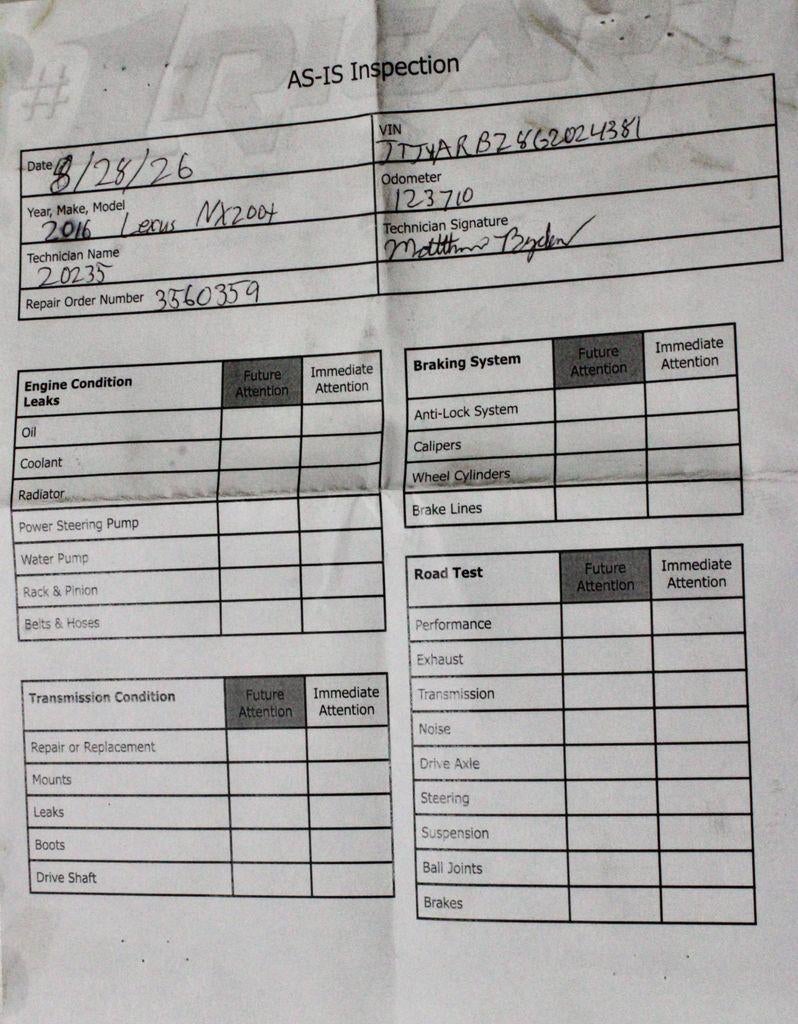 AS-IS Inspection
Date 8/28/26
VIN JTJYARBZ8G2024381
Year, Make, Model 2016 Lexus NX200t
Odometer 123710
Technician Name 20235
Technician Signature
Repair Order Number 3560359
Engine Condition Leaks Future Attention Immediate Attention
Oil
Coolant
Radiator
Power Steering Pump
Water Pump
Rack & Pinion
Belts & Hoses
Braking System Future Attention Immediate Attention
Anti-Lock System
Calipers
Wheel Cylinders
Brake Lines
Transmission Condition Future Attention Immediate Attention
Repair or Replacement
Mounts
Leaks
Boots
Drive Shaft
Road Test Future Attention Immediate Attention
Performance
Exhaust
Transmission
Noise
Drive Axle
Steering
Suspension
Ball Joints
Brakes